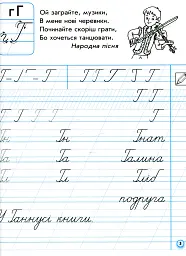 гГ
Ой заграйте, музики,
В мене нові черевики.
Починайте скоріш грати,
Бо хочеться танцювати.
Народна пісня
Г Г Г Г Г Г Г
Г Г
Г Г
Гн Гн Гнат
Га Га Галина
Гл Гл Гліб
подруга
У Ганнусі книги.
3